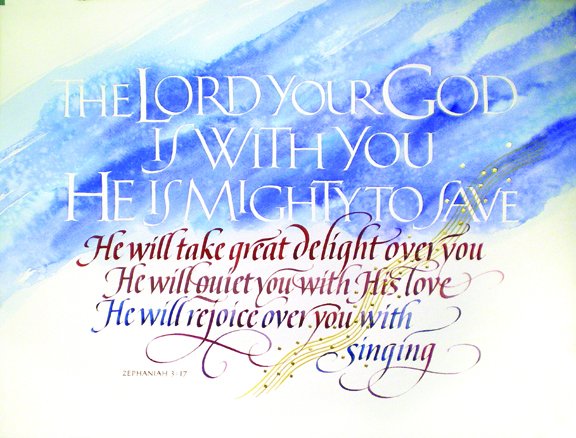 THE LORD YOUR GOD
IS WITH YOU
HE IS MIGHTY TO SAVE
He will take great delight over you
He will quiet you with His love
He will rejoice over you with
singing
ZEPHANIAH 3·17